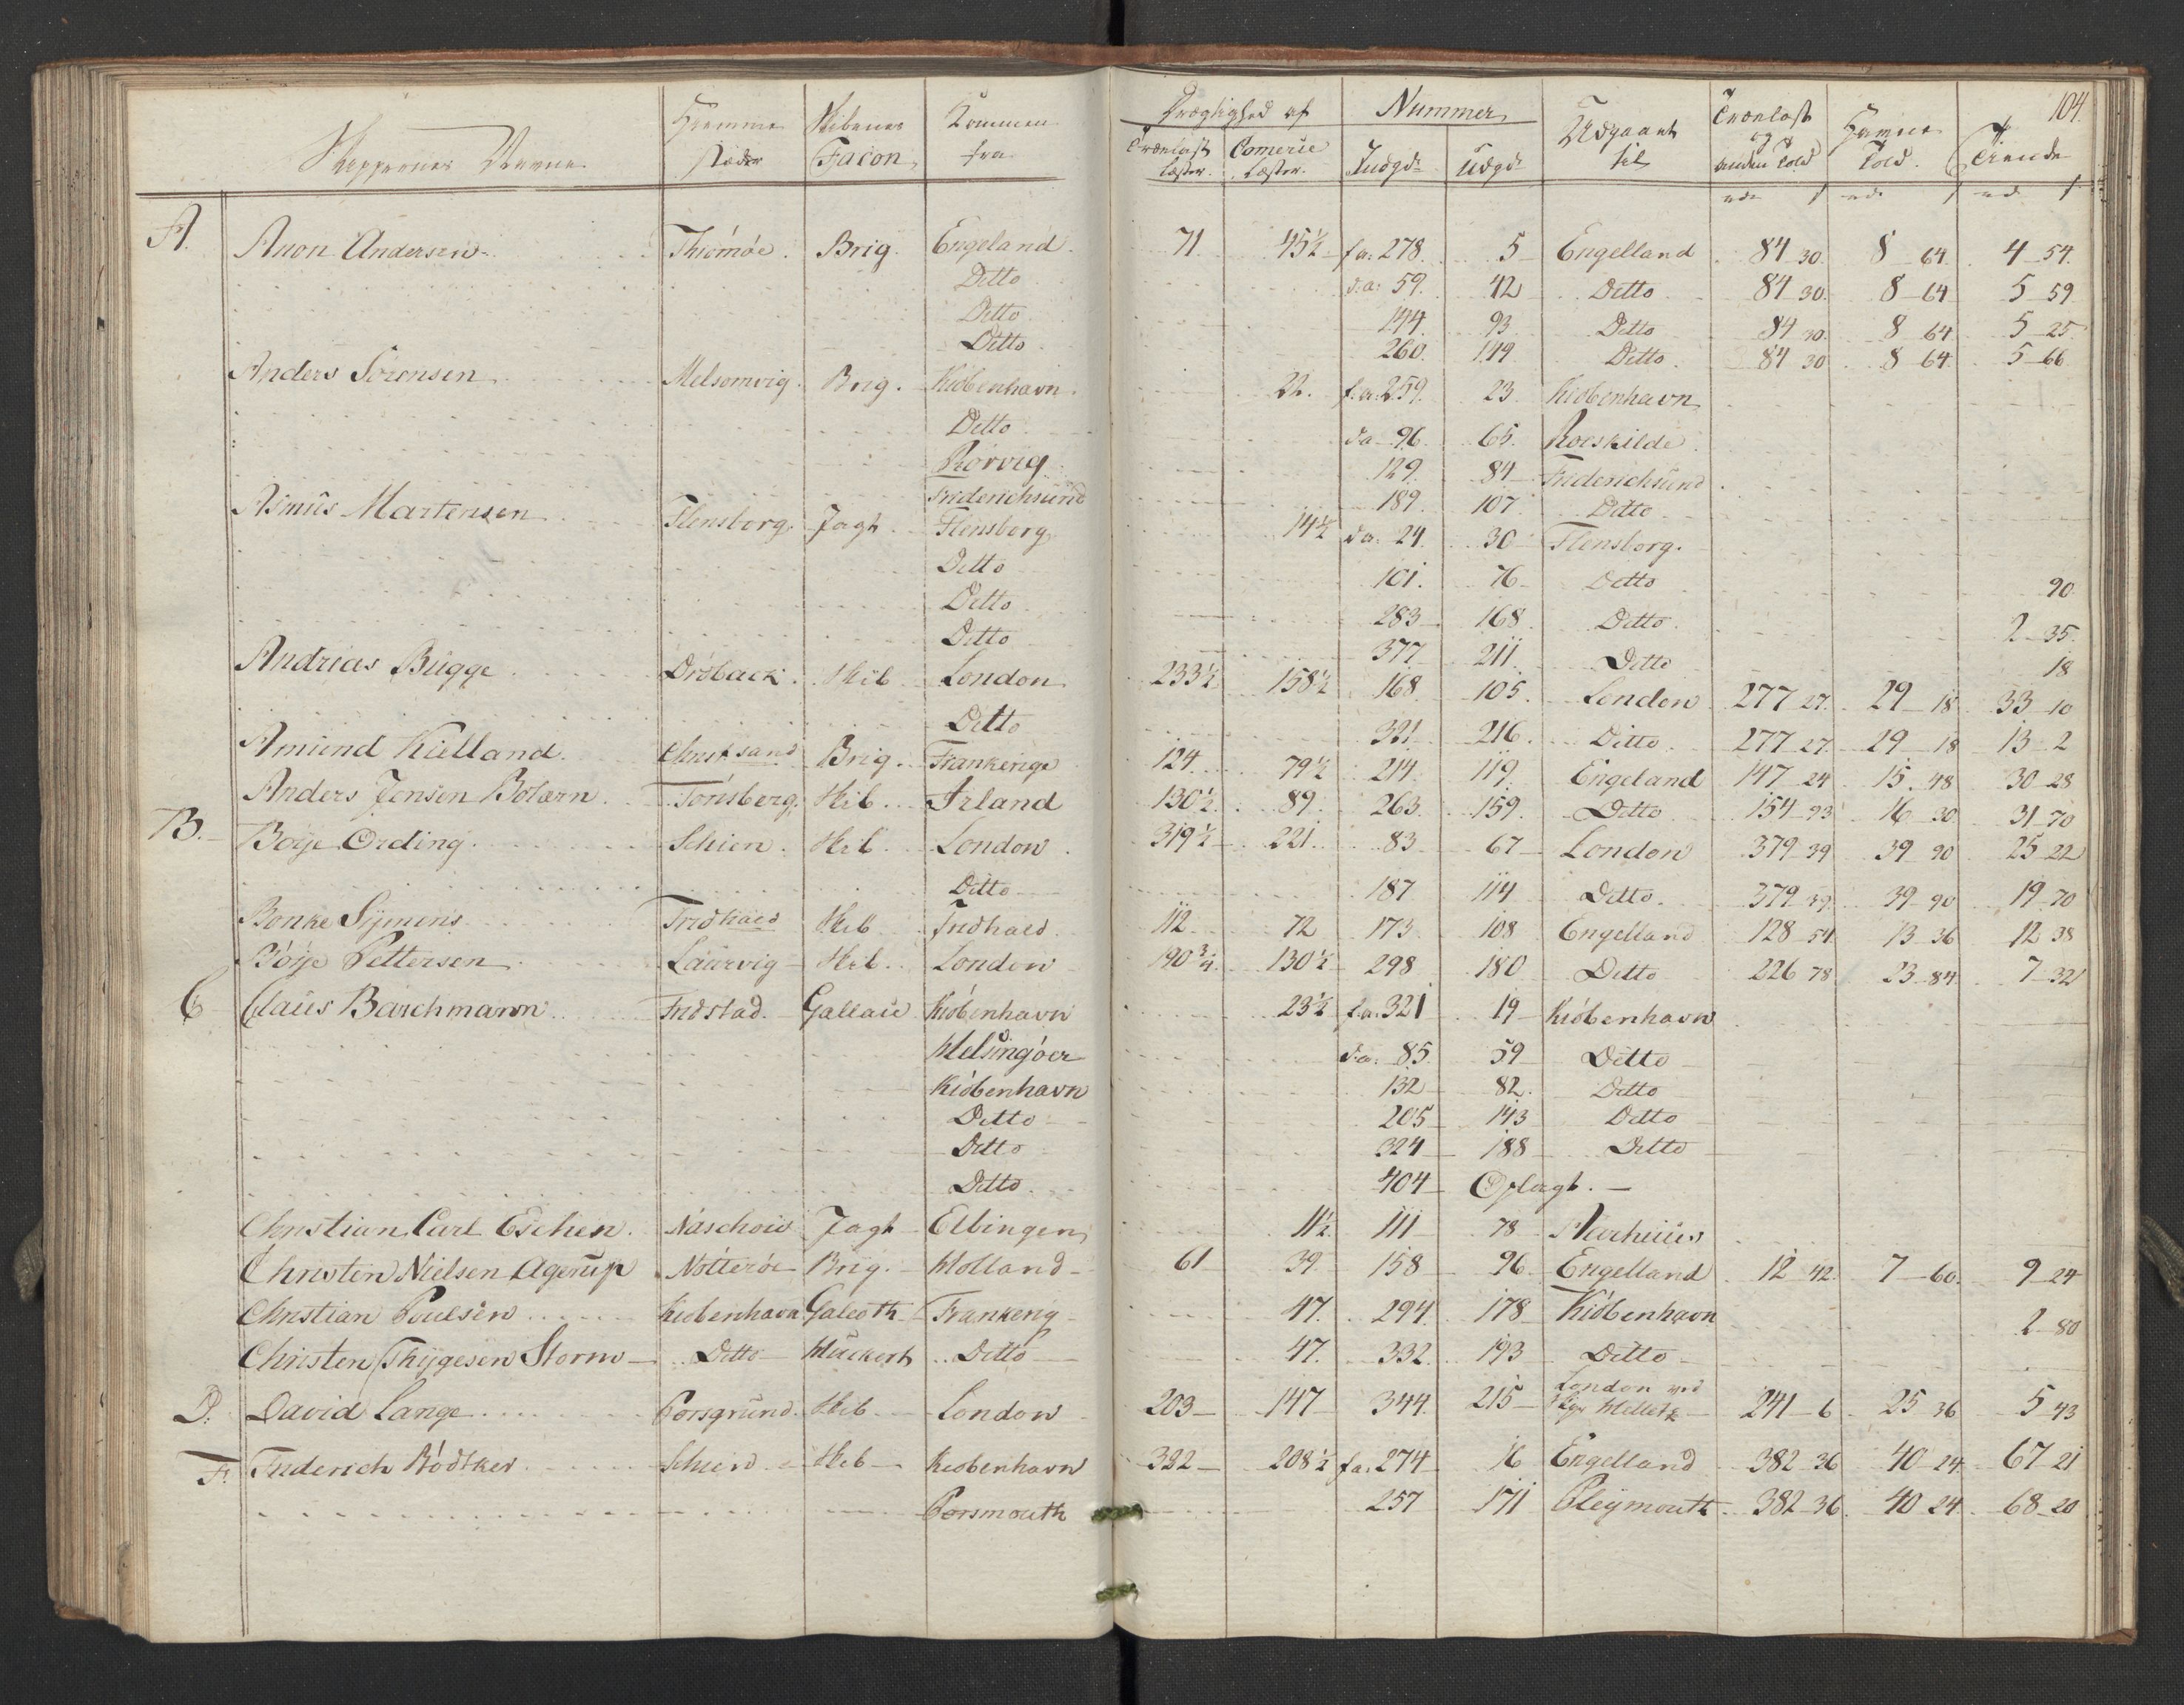 104.
Skippernes Navne | Hiemme stæder | Skibenes Facon | Kommen fra | Drægtighed af Trælast Læster. | Comerce Læster. | Nummer Indgd: | Udgd: | Udgaaet til | Trælast og anden Told | Havne Told. | Tiende
A. Anon Andersen | Thiömöe. | Brig. | Engeland | 71. | 45½ | f.a: 278. | 5 | Engelland | 84 30. | 8 64. | 4 54.
Ditto | d:a: 59. | 42 | Ditto | 84 30. | 8 64 | 5 59
Ditto | 144. | 93 | Ditto | 84 30. | 8 64 | 5 25
Ditto | 260. | 149 | Ditto | 84 30 | 8 64 | 5 66
Anders Sörensen | Melsomvig. | Brig. | Kiöbenhavn | 22. | f:a: 259. | 23. | Kiöbenhavn
Ditto | da 96. | 65. | Roeskilde
Rörvig | 129. | 84 | Friderichsund
Friderichsund | 189. | 107 | Ditto
Asmus Martensen | Flensborg. | Jagt | Flensborg | 14½ | da: 24. | 30 | Flensborg.
Ditto | 101. | 76 | Ditto | 90
Ditto | 283 | 168. | Ditto | 2 35.
Ditto | 377 | 211. | Ditto | 18
Andrias Bugge | Dröback. | Skib | London | 233½ | 158½ | 168 | 105. | London | 277 27. | 29 18 | 33 10
Ditto | 331 | 216. | Ditto | 277 27 | 29 18 | 13 2
Amund Kielland. | Christsand | Brig. | Frankerige | 124. | 79½ | 214 | 119. | Engeland | 147 24 | 15. 48 | 30 28
Anders Jensen Bolærn | Tönsberg. | Skib | Irland | 130½ | 89. | 263. | 159. | Ditto | 154 93 | 16 30 | 31 70
B. Böye Ording. | Schien. | Skib. | London. | 319½ | 221. | 83 | 67 | London | 379 39 | 39 90 | 25 22
Ditto | 187 | 114 | Ditto. | 379 39. | 39 90 | 19 70
Bonke Sÿmens | Fridhald | Skib | Fridhald. | 112. | 72 | 173. | 108 | Engelland | 128 54. | 13 36 | 12 38
Böye Pettersen | Laurvig | Skib. | London | 190¾ | 130½ | 298 | 180 | Ditto | 226 78. | 23 84. | 7 32
C Claus Barchmann | Fridstad. | Gallaie | Kiöbenhavn | 23½ | f:a: 321 | 19 | Kiöbenhavn
Helsingöer | d:a: 85. | 59 | Ditto
Kiöbenhavn | 132 | 82. | Ditto
Ditto | 205 | 143 | Ditto
Ditto | 324 | 188 | Ditto
Ditto. | 404 | Oplagt.
Christian Carl Eschen. | Naschow | Jagt | Elbingen | 11½ | 111 | 78 | Aarhuus
Christen Nielsen Agerup | Nötteröe | Brig. | Holland | 61 | 39. | 158 | 96. | Engelland | 12 42. | 7 60. | 9 24
Christian Poulsen | Kiöbenhavn | Galeoth | Frankerig | 47. | 294. | 178 | Kiöbenhavn | 2 80
Christen Thÿgesen Storm | Ditto | Huckert | Ditto | 47. | 332. | 193 | Ditto
D. David Lange | Porsgrund. | Skib | London | 203 | 147 | 344. | 215 | London ved | 241 6 | 25 36 | 5 43
F. Friderich Rödtker | Schien | Skib | Kiobenhavn | 322 | 208½ | f.a: 274 | 16 | Engelland | 382 36 | 40 24 | 67 21
Porsmouth | 257 | 171 | Pleÿmouth | 382 36. | 40 24. | 68 20